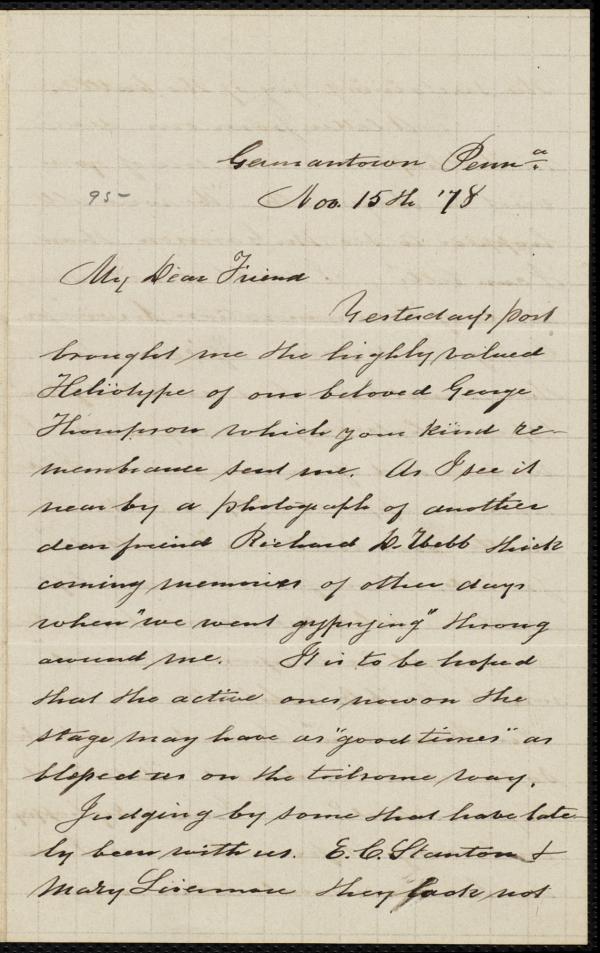 Germantown Penn.a
95- Nov. 15th '78
My Dear Friend
Yesterday's post
brought me the highly valued
Heliotype of our beloved George
Thompson which your kind re-
membrance sent me. As I see it
near by a photograph of another
dear friend Richard D. Webb thick
coming memories of other days
when "we went gypsying" throng
around me. It is to be hoped
that the active ones now on the
stage may have as "good times" as
blessed us on the toilsome way.
Judging by some that have late-
ly been with us. E. C. Stanton &
Mary Livermore they lack not